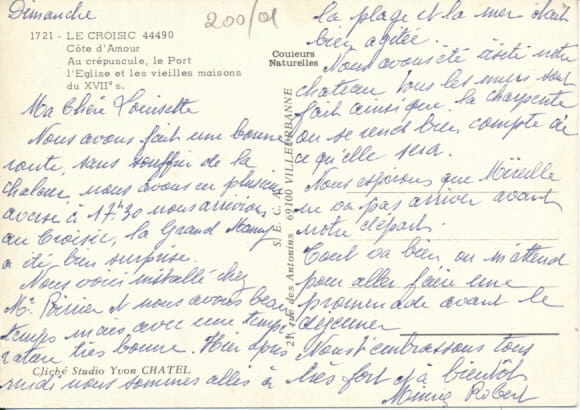 Dimanche
200/01
1721 - LE CROISIC 44490
Côte d'Amour
Au crépuscule, le Port
l'Eglise et les vieilles maisons
du XVIIe s.
Couleurs
Naturelles
Ma Chère Louisette
Nous avons fait une bonne
route, sans souffrir de la
chaleur, nous avons eu plusieurs
averse à 17h30 nous arrivions
au Croisic, la Grand Mamy
a été bien surprise.
Nous voici installé chez
Mr Poirier et nous avons beau
temps mais avec une tempé
rature très bonne. Hier après
midi nous sommes allés à
la plage et la mer était
bien agitée.
Nous avons été visité notre
chateau tous les murs sont
fait ainsi que la charpente
on se rend bien compte de
ce qu'elle sera.
Nous esperons que Mireille
ne va pas arriver avant
notre départ.
Tout va bien on m'attend
pour aller faire une
promenade avant le
déjeuner
Nous t'embrassons tous
très fort et à bientôt
Robert
S.E.C.A.
21, rue des Antonins 69100 VILLEURBANNE
Cliché Studio Yvon CHATEL